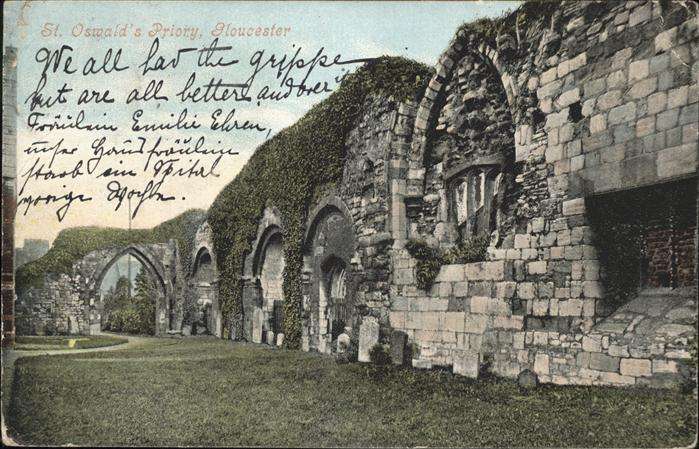 St. Oswald's Priory, Gloucester
We all had the grippe
but are all better and over it
Fräulein Emilie Ehren,
unser Hausfräulein
starb im Spital
vorige Woche.